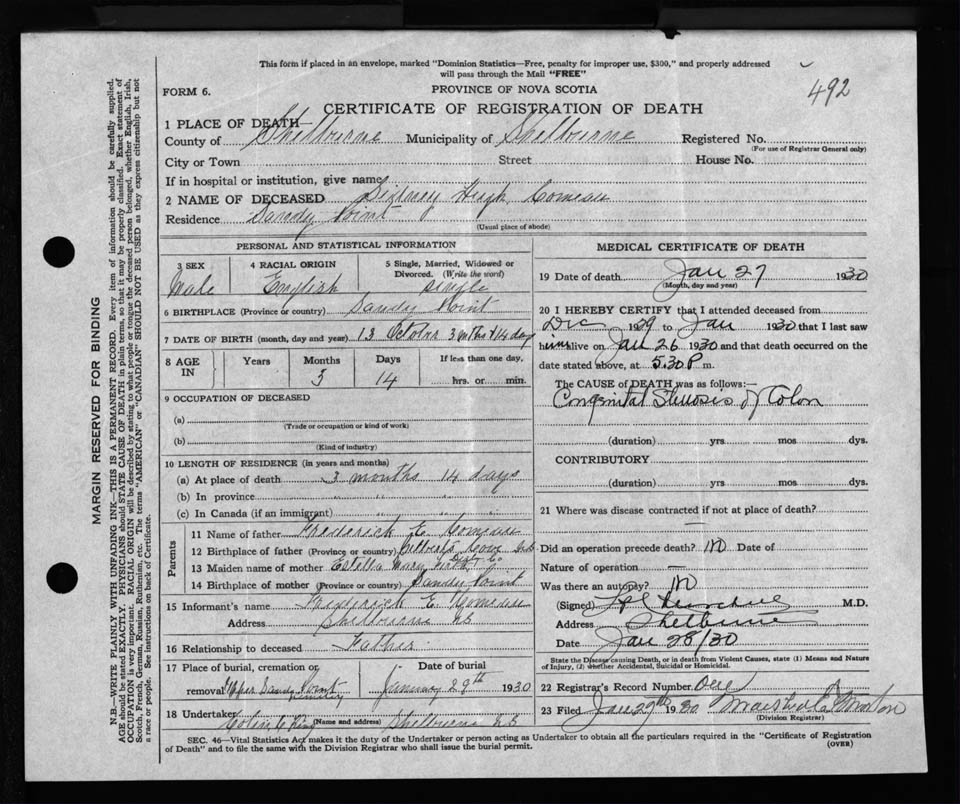 This form if placed in an envelope, marked "Dominion Statistics—Free, penalty for improper use, $300," and properly addressed
will pass through the Mail "FREE"
492
FORM 6.
PROVINCE OF NOVA SCOTIA
CERTIFICATE OF REGISTRATION OF DEATH
1 PLACE OF DEATH—
County of Shelburne Municipality of Shelburne Registered No.
(For use of Registrar General only)
City or Town Street House No.
If in hospital or institution, give name
2 NAME OF DECEASED Sidney Hugh Comeau
Residence Sandy Point
(Usual place of abode)
PERSONAL AND STATISTICAL INFORMATION
3 SEX 4 RACIAL ORIGIN 5 Single, Married, Widowed or
Divorced. (Write the word)
Male English single
6 BIRTHPLACE (Province or country) Sandy Point
7 DATE OF BIRTH (month, day and year) 13 October 3 mths + 14 day
8 AGE IN Years Months Days If less than one day,
3 14 hrs. or min.
9 OCCUPATION OF DECEASED
(a)
(Trade or occupation or kind of work)
(b)
(Kind of industry)
10 LENGTH OF RESIDENCE (in years and months)
(a) At place of death 3 months 14 days
(b) In province " " " "
(c) In Canada (if an immigrant) " " " "
Parents
11 Name of father Frederick E. Comeau
12 Birthplace of father (Province or country) Cove NS
13 Maiden name of mother Estella Mary
14 Birthplace of mother (Province or country) Sandy Point
15 Informant's name Frederick E. Comeau
Address Shelburne NS
16 Relationship to deceased Father
17 Place of burial, cremation or Date of burial
removal Upper Sandy Point Cemetery January 29th 1930
18 Undertaker Shelburne NS
(Name and address)
MEDICAL CERTIFICATE OF DEATH
19 Date of death Jan 27 1930
(Month, day and year)
20 I HEREBY CERTIFY that I attended deceased from
Dec 1929 to Jan 1930 that I last saw
him alive on Jan 26 1930 and that death occurred on the
date stated above, at 5.30 P m.
The CAUSE of DEATH was as follows:—
Congenital Stenosis of Colon
(duration) yrs mos dys.
CONTRIBUTORY
(duration) yrs mos dys.
21 Where was disease contracted if not at place of death?
—
Did an operation precede death? no Date of
Nature of operation —
Was there an autopsy? no
(Signed) M.D.
Address Shelburne
Date Jan 28/30
State the Disease causing Death, or in death from Violent Causes, state (1) Means and Nature
of Injury, (2) whether Accidental, Suicidal or Homicidal.
22 Registrar's Record Number One
23 Filed Jan 29th 1930
(Division Registrar)
SEC. 46—Vital Statistics Act makes it the duty of the Undertaker or person acting as Undertaker to obtain all the particulars required in the "Certificate of Registration
of Death" and to file the same with the Division Registrar who shall issue the burial permit.
(OVER)
MARGIN RESERVED FOR BINDING
N.B.—WRITE PLAINLY WITH UNFADING INK—THIS IS A PERMANENT RECORD. Every item of information should be carefully supplied.
AGE should be stated EXACTLY. PHYSICIANS should STATE CAUSE OF DEATH in plain terms, so that it may be properly classified. Exact statement of
OCCUPATION is very important. RACIAL ORIGIN will be described by stating to what people or tongue the deceased person belonged, whether English, Irish,
Scotch, French, German, Russian, Ruthenian, etc. The terms "AMERICAN" or "CANADIAN" SHOULD NOT BE USED as they express citizenship but not
a race or people. See instructions on back of Certificate.